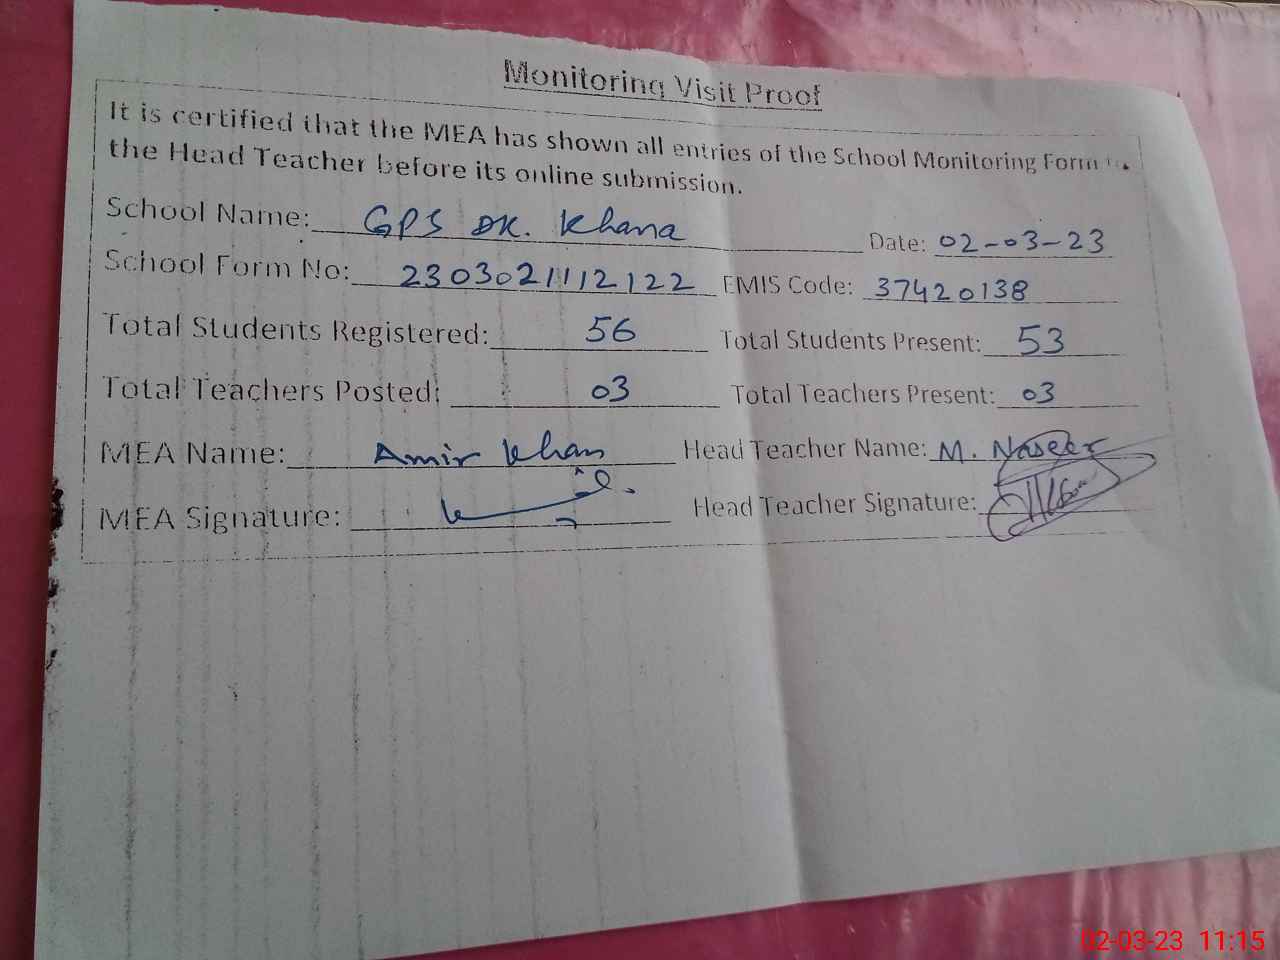 Monitoring Visit Proof
It is certified that the MEA has shown all entries of the School Monitoring Form to
the Head Teacher before its online submission.
School Name: GPS DK. Khana Date: 02-03-23
School Form No: 2303021112122 EMIS Code: 37420138
Total Students Registered: 56 Total Students Present: 53
Total Teachers Posted: 03 Total Teachers Present: 03
MEA Name: Amir Khan Head Teacher Name: M. Naseer
MEA Signature: Head Teacher Signature:
02-03-23 11:15